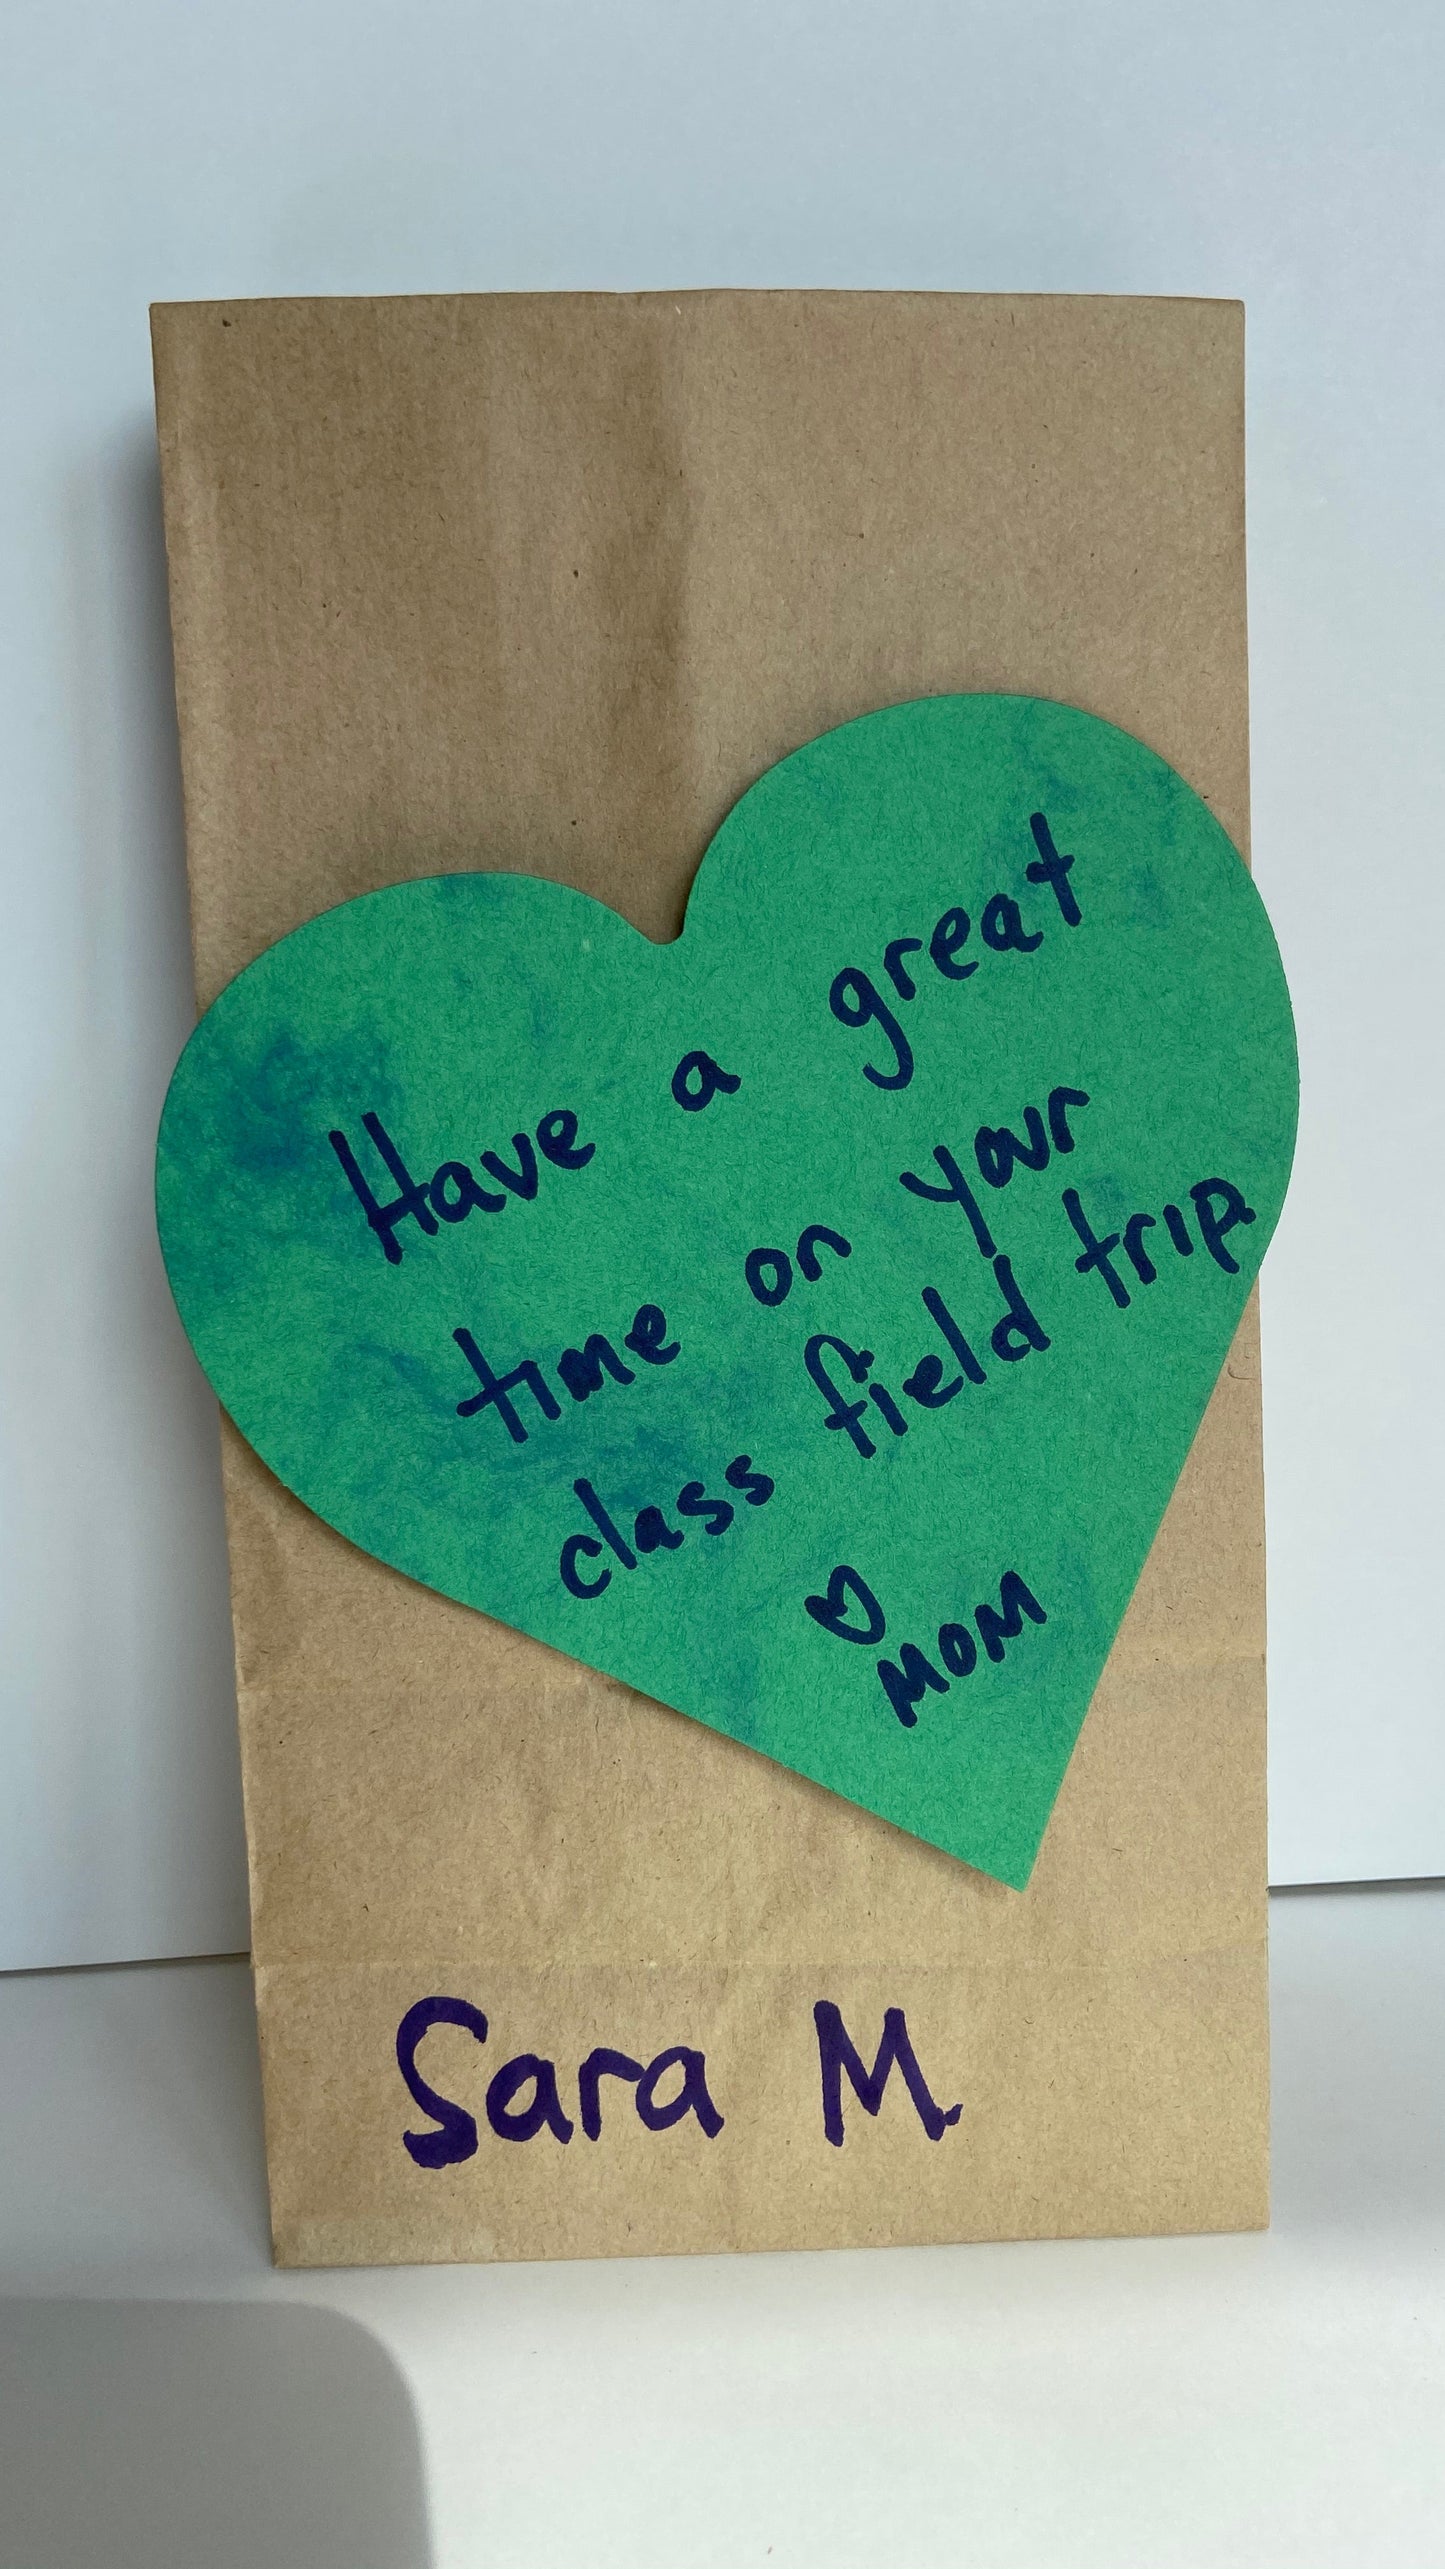 Have a great
time on your
class field trip.
♡ Mom
Sara M.